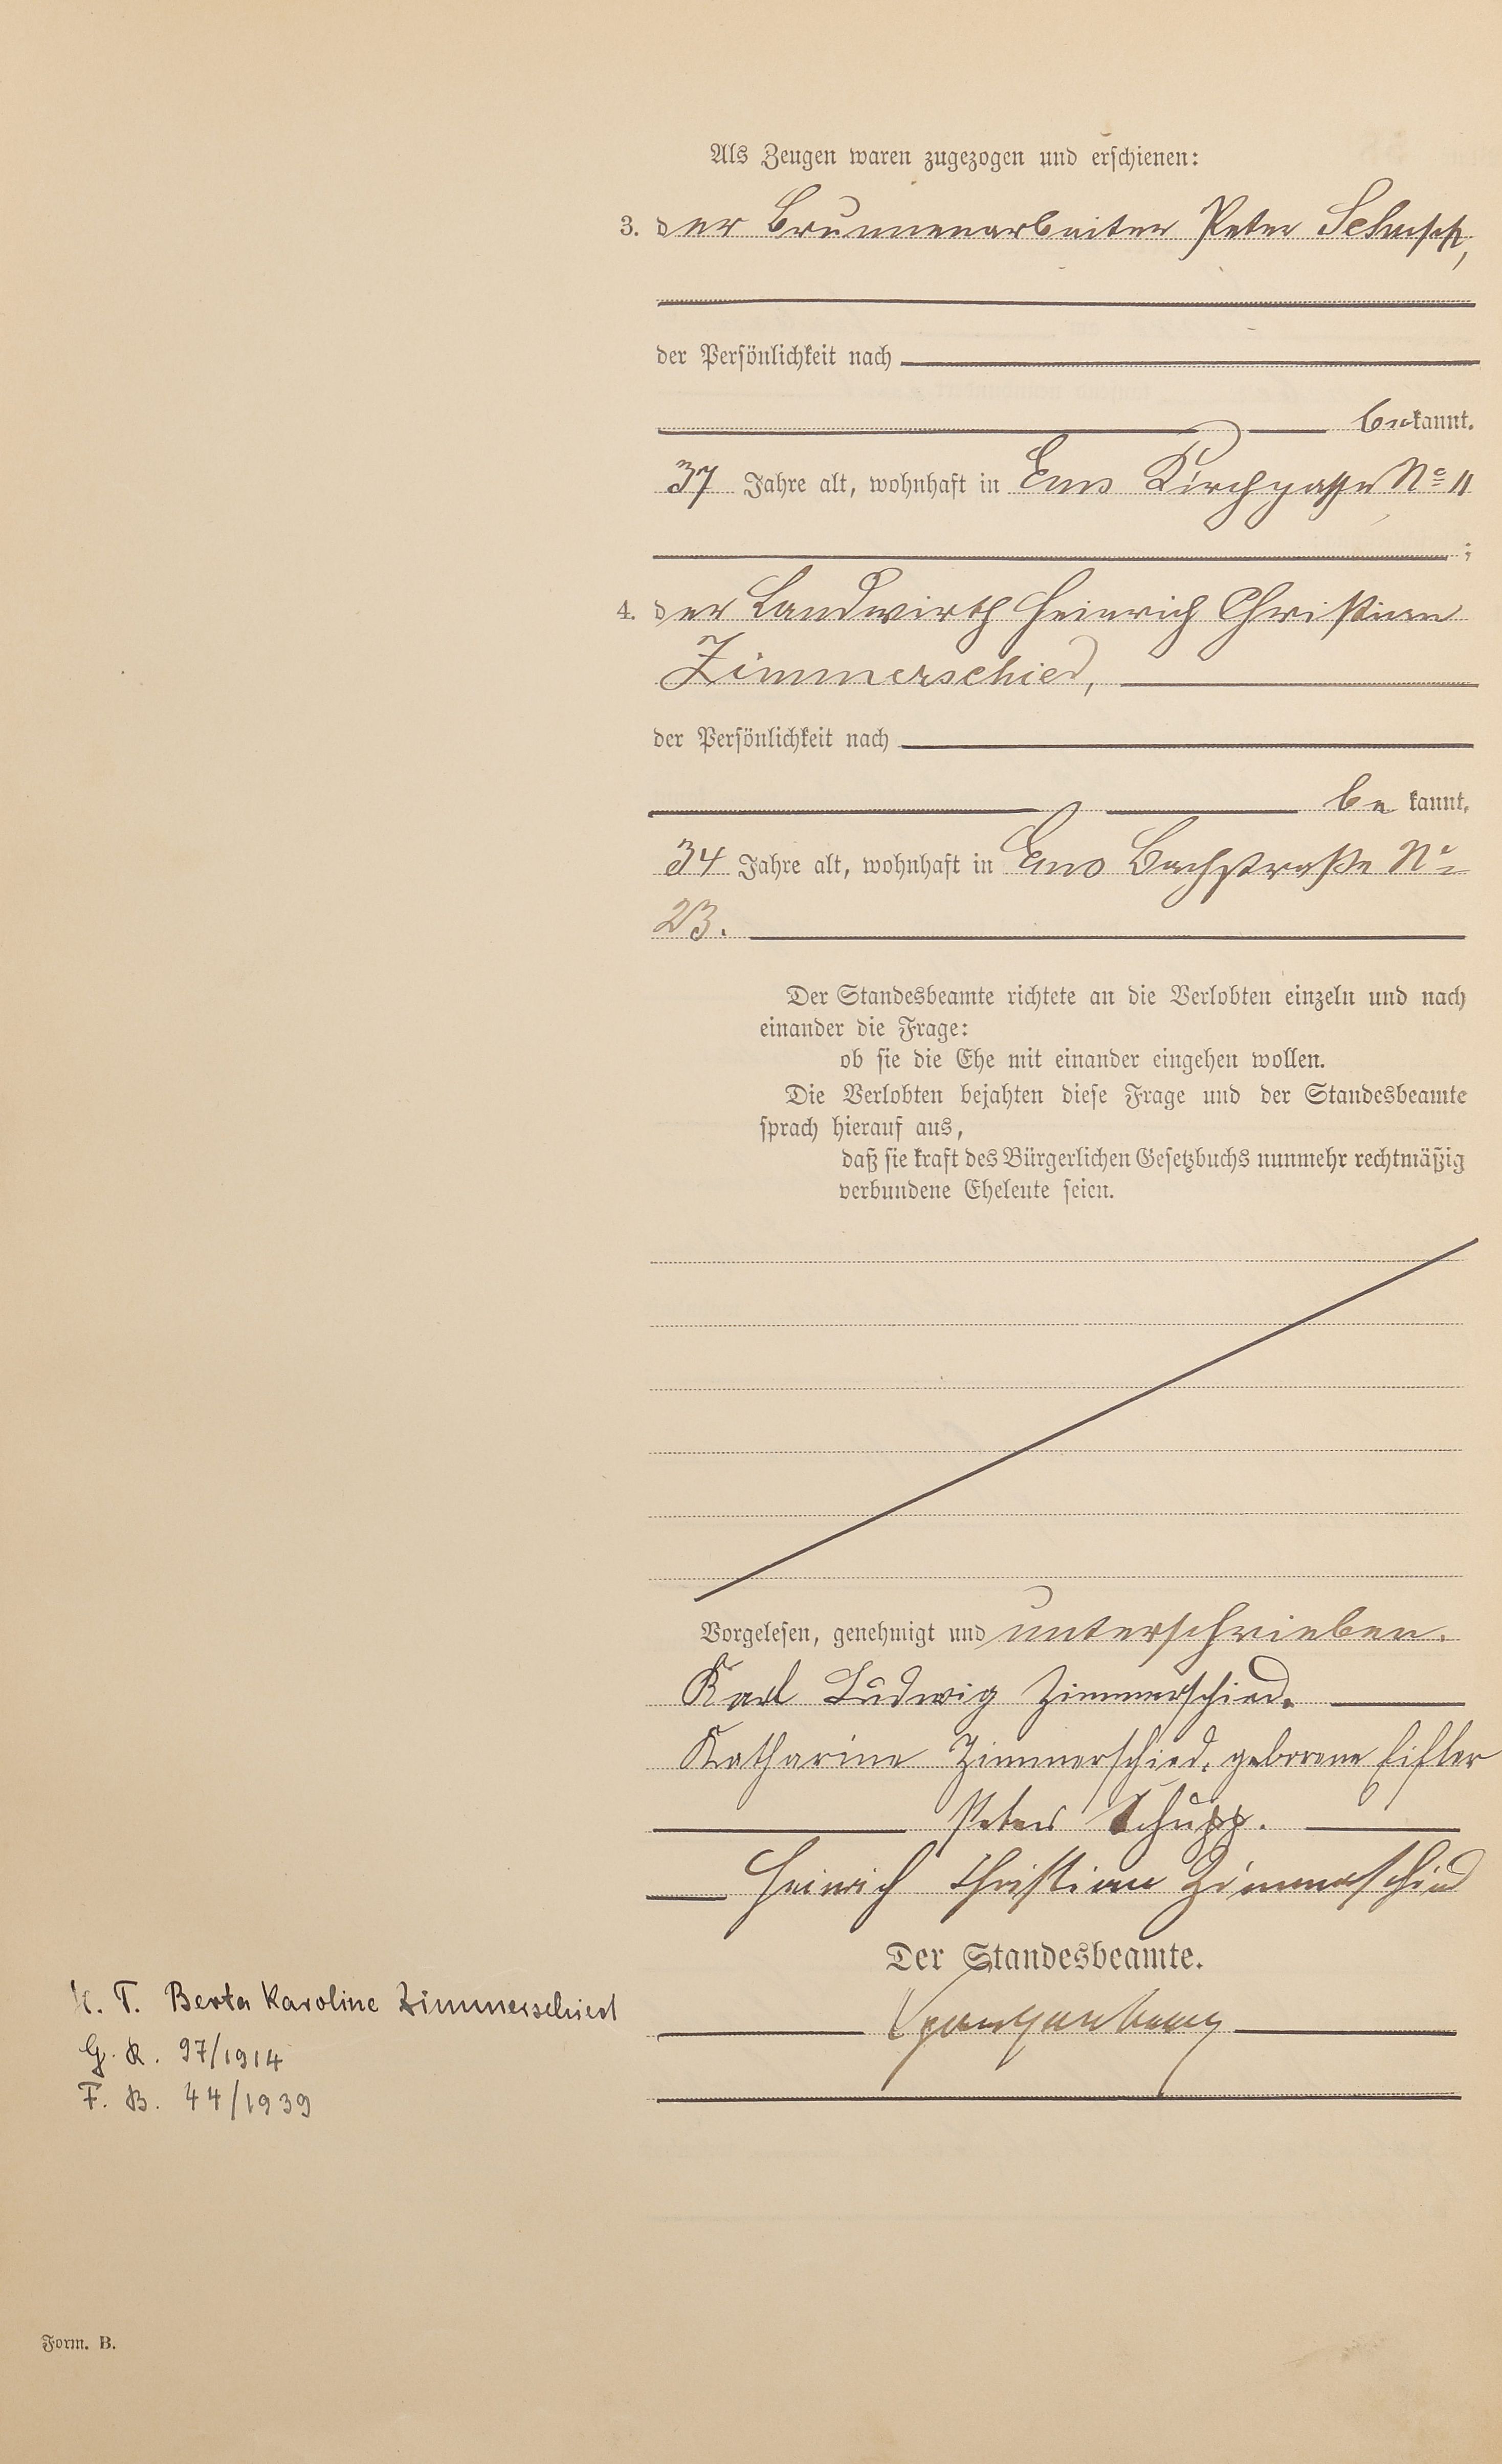 Als Zeugen waren zugezogen und erschienen:
3. der Brunnenarbeiter Peter Schupp,
der Persönlichkeit nach
bekannt.
37 Jahre alt, wohnhaft in Ems Kirchgasse No 11
;
4. der Landwirth Heinrich Christian
Zimmerschied,
der Persönlichkeit nach
be kannt,
34 Jahre alt, wohnhaft in Ems Bachstraße No
23.
Der Standesbeamte richtete an die Verlobten einzeln und nach
einander die Frage:
ob sie die Ehe mit einander eingehen wollen.
Die Verlobten bejahten diese Frage und der Standesbeamte
sprach hierauf aus,
daß sie kraft des Bürgerlichen Gesetzbuchs nunmehr rechtmäßig
verbundene Eheleute seien.
Vorgelesen, genehmigt und unterschrieben.
Karl Ludwig Zimmerschied.
Katharina Zimmerschied. geborene Eifler
Peter Schupp.
Heinrich Christian Zimmerschied
Der Standesbeamte.
Spangenberg
K. T. Berta Karoline Zimmerschied
G. R. 97/1914
F. B. 44/1939
Form. B.